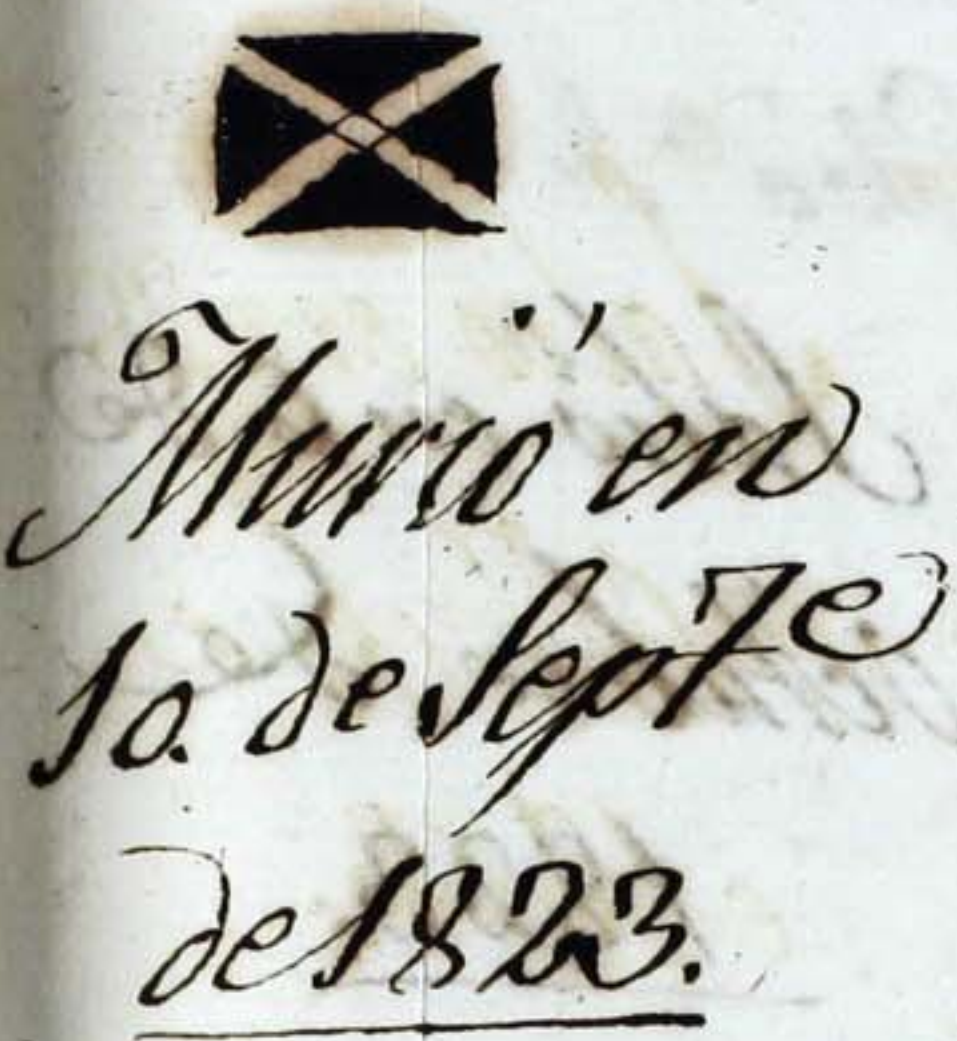 Murió en
10. de Sept.e
de 1823.